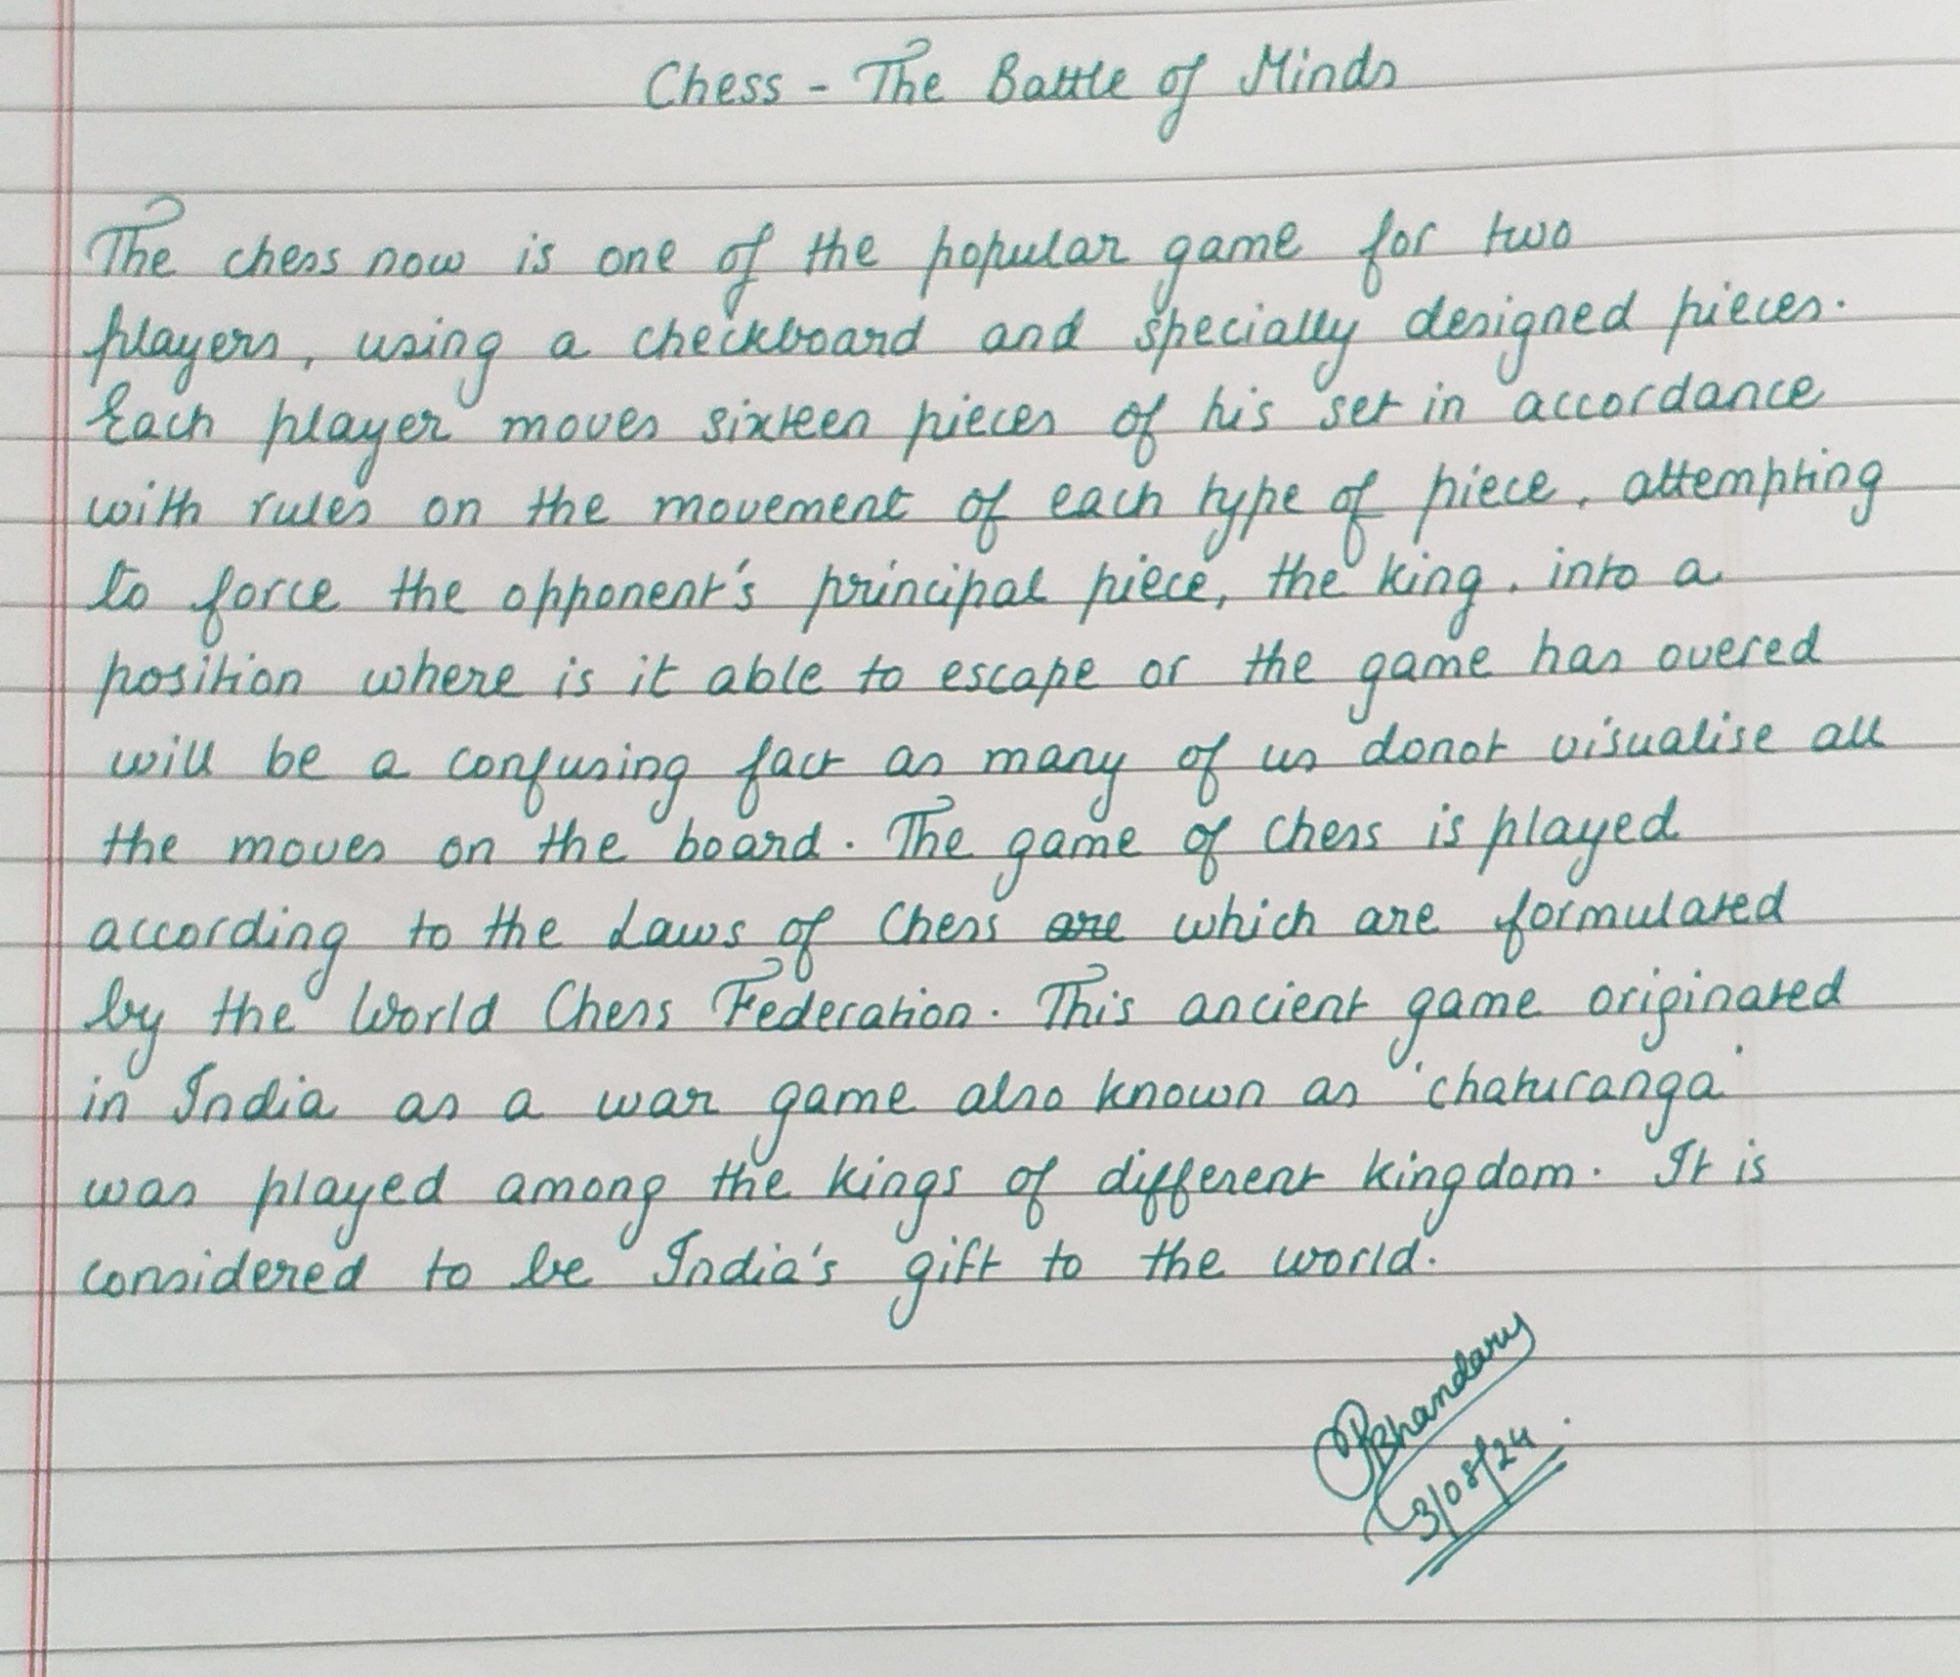 Chess - The Battle of Minds
The chess now is one of the popular game for two
players, using a checkboard and specially designed pieces.
Each player moves sixteen pieces of his set in accordance
with rules on the movement of each type of piece, attempting
to force the opponent's principal piece, the king, into a
position where is it able to escape or the game has overed
will be a confusing fact as many of us donot visualise all
the moves on the board. The game of chess is played
according to the Laws of Chess are which are formulated
by the World Chess Federation. This ancient game originated
in India as a war game also known as 'chaturanga'
was played among the kings of different kingdom. It is
considered to be India's gift to the world.
Bhandary
3/08/24